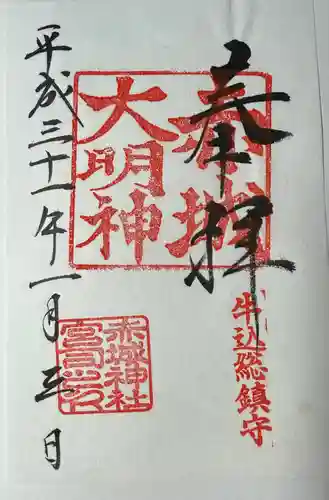 奉拝
牛込総鎮守
赤城
大明神
赤城神社
宮司之印
平成三十一年一月五日